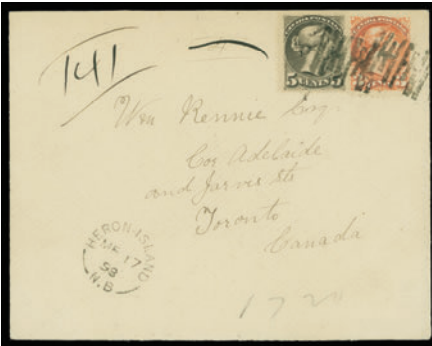 141
5 CENTS 5
Wm Rennie Esq.
Cor Adelaide
and Jarvis Sts
Toronto
Canada
HERON-ISLAND
MR 17
98
N.B